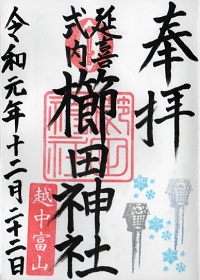 奉拝
延喜
式内
櫛田神社
越中富山
令和元年十二月二十二日